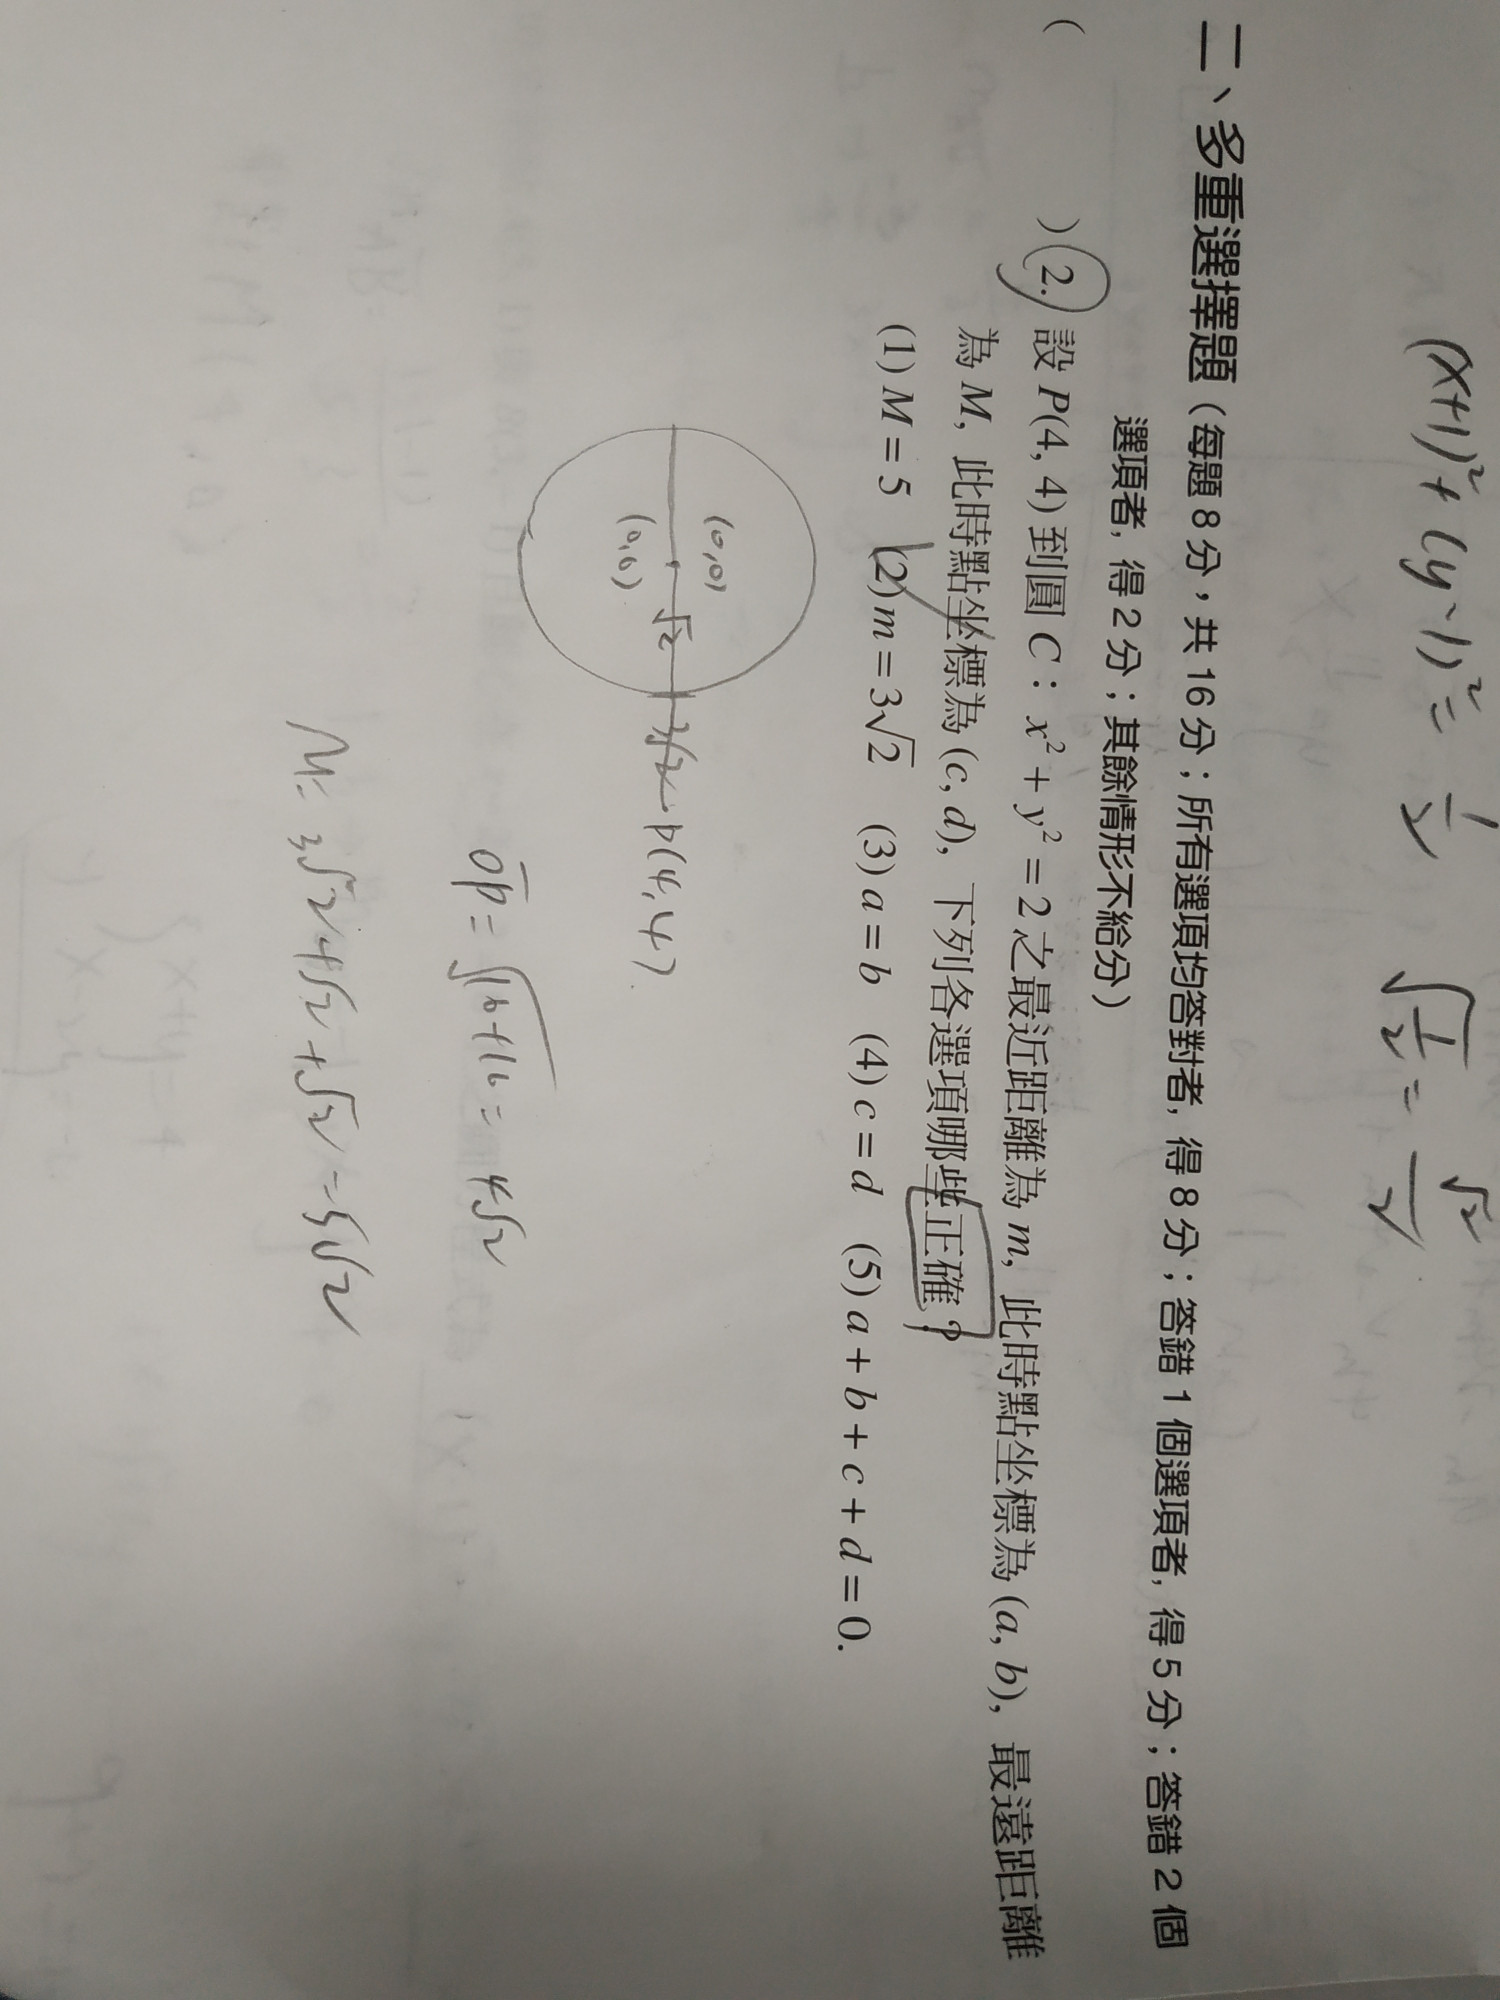 (x+1)²+(y-1)²=1/2 √(1/2)=√2/2
二、多重選擇題（每題8分，共16分；所有選項均答對者，得8分；答錯1個選項者，得5分；答錯2個
選項者，得2分；其餘情形不給分）
( ) 2. 設P(4, 4)到圓C：x²+y²=2之最近距離為m，此時點坐標為(a, b)，最遠距離
為M，此時點坐標為(c, d)，下列各選項哪些正確？
(1) M=5 (2) m=3√2 (3) a=b (4) c=d (5) a+b+c+d=0.
(0,0)
√2 3√2 P(4,4)
(0,0)
OP=√16+16=4√2
M=3√2+√2+√2=5√2